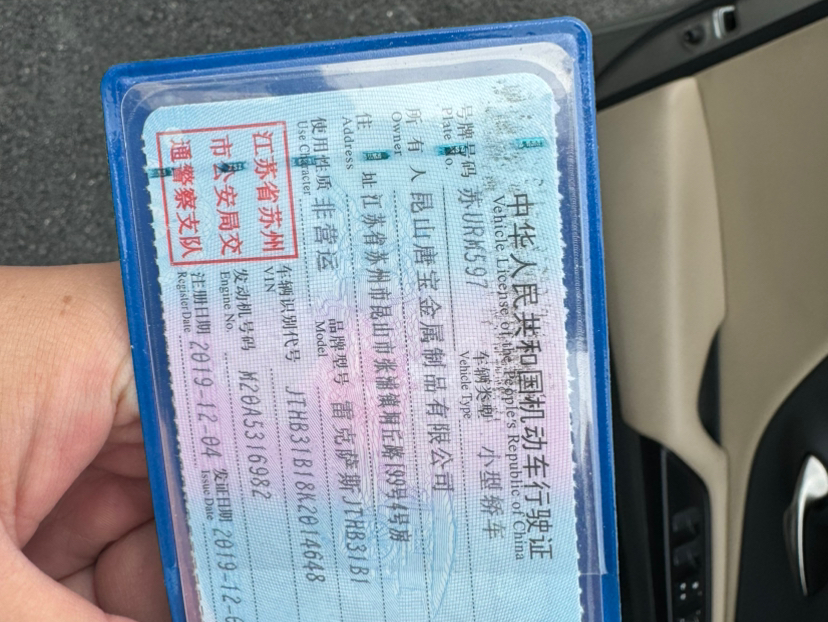 中华人民共和国机动车行驶证
Vehicle License of the People's Republic of China
号牌号码 苏URM597 车辆类型 小型轿车
Plate No. Vehicle Type
所有人 昆山唐宝金属制品有限公司
Owner
住址 江苏省苏州市昆山市张浦镇垌丘路199号4号房
Address
使用性质 非营运 品牌型号 雷克萨斯JTHB31B1
Use Character Model
江苏省苏州
市公安局交
通警察支队
车辆识别代号 JTHB31B18K2014648
VIN
发动机号码 M20A5316982
Engine No.
注册日期 2019-12-04 发证日期 2019-12-
Register Date Issue Date